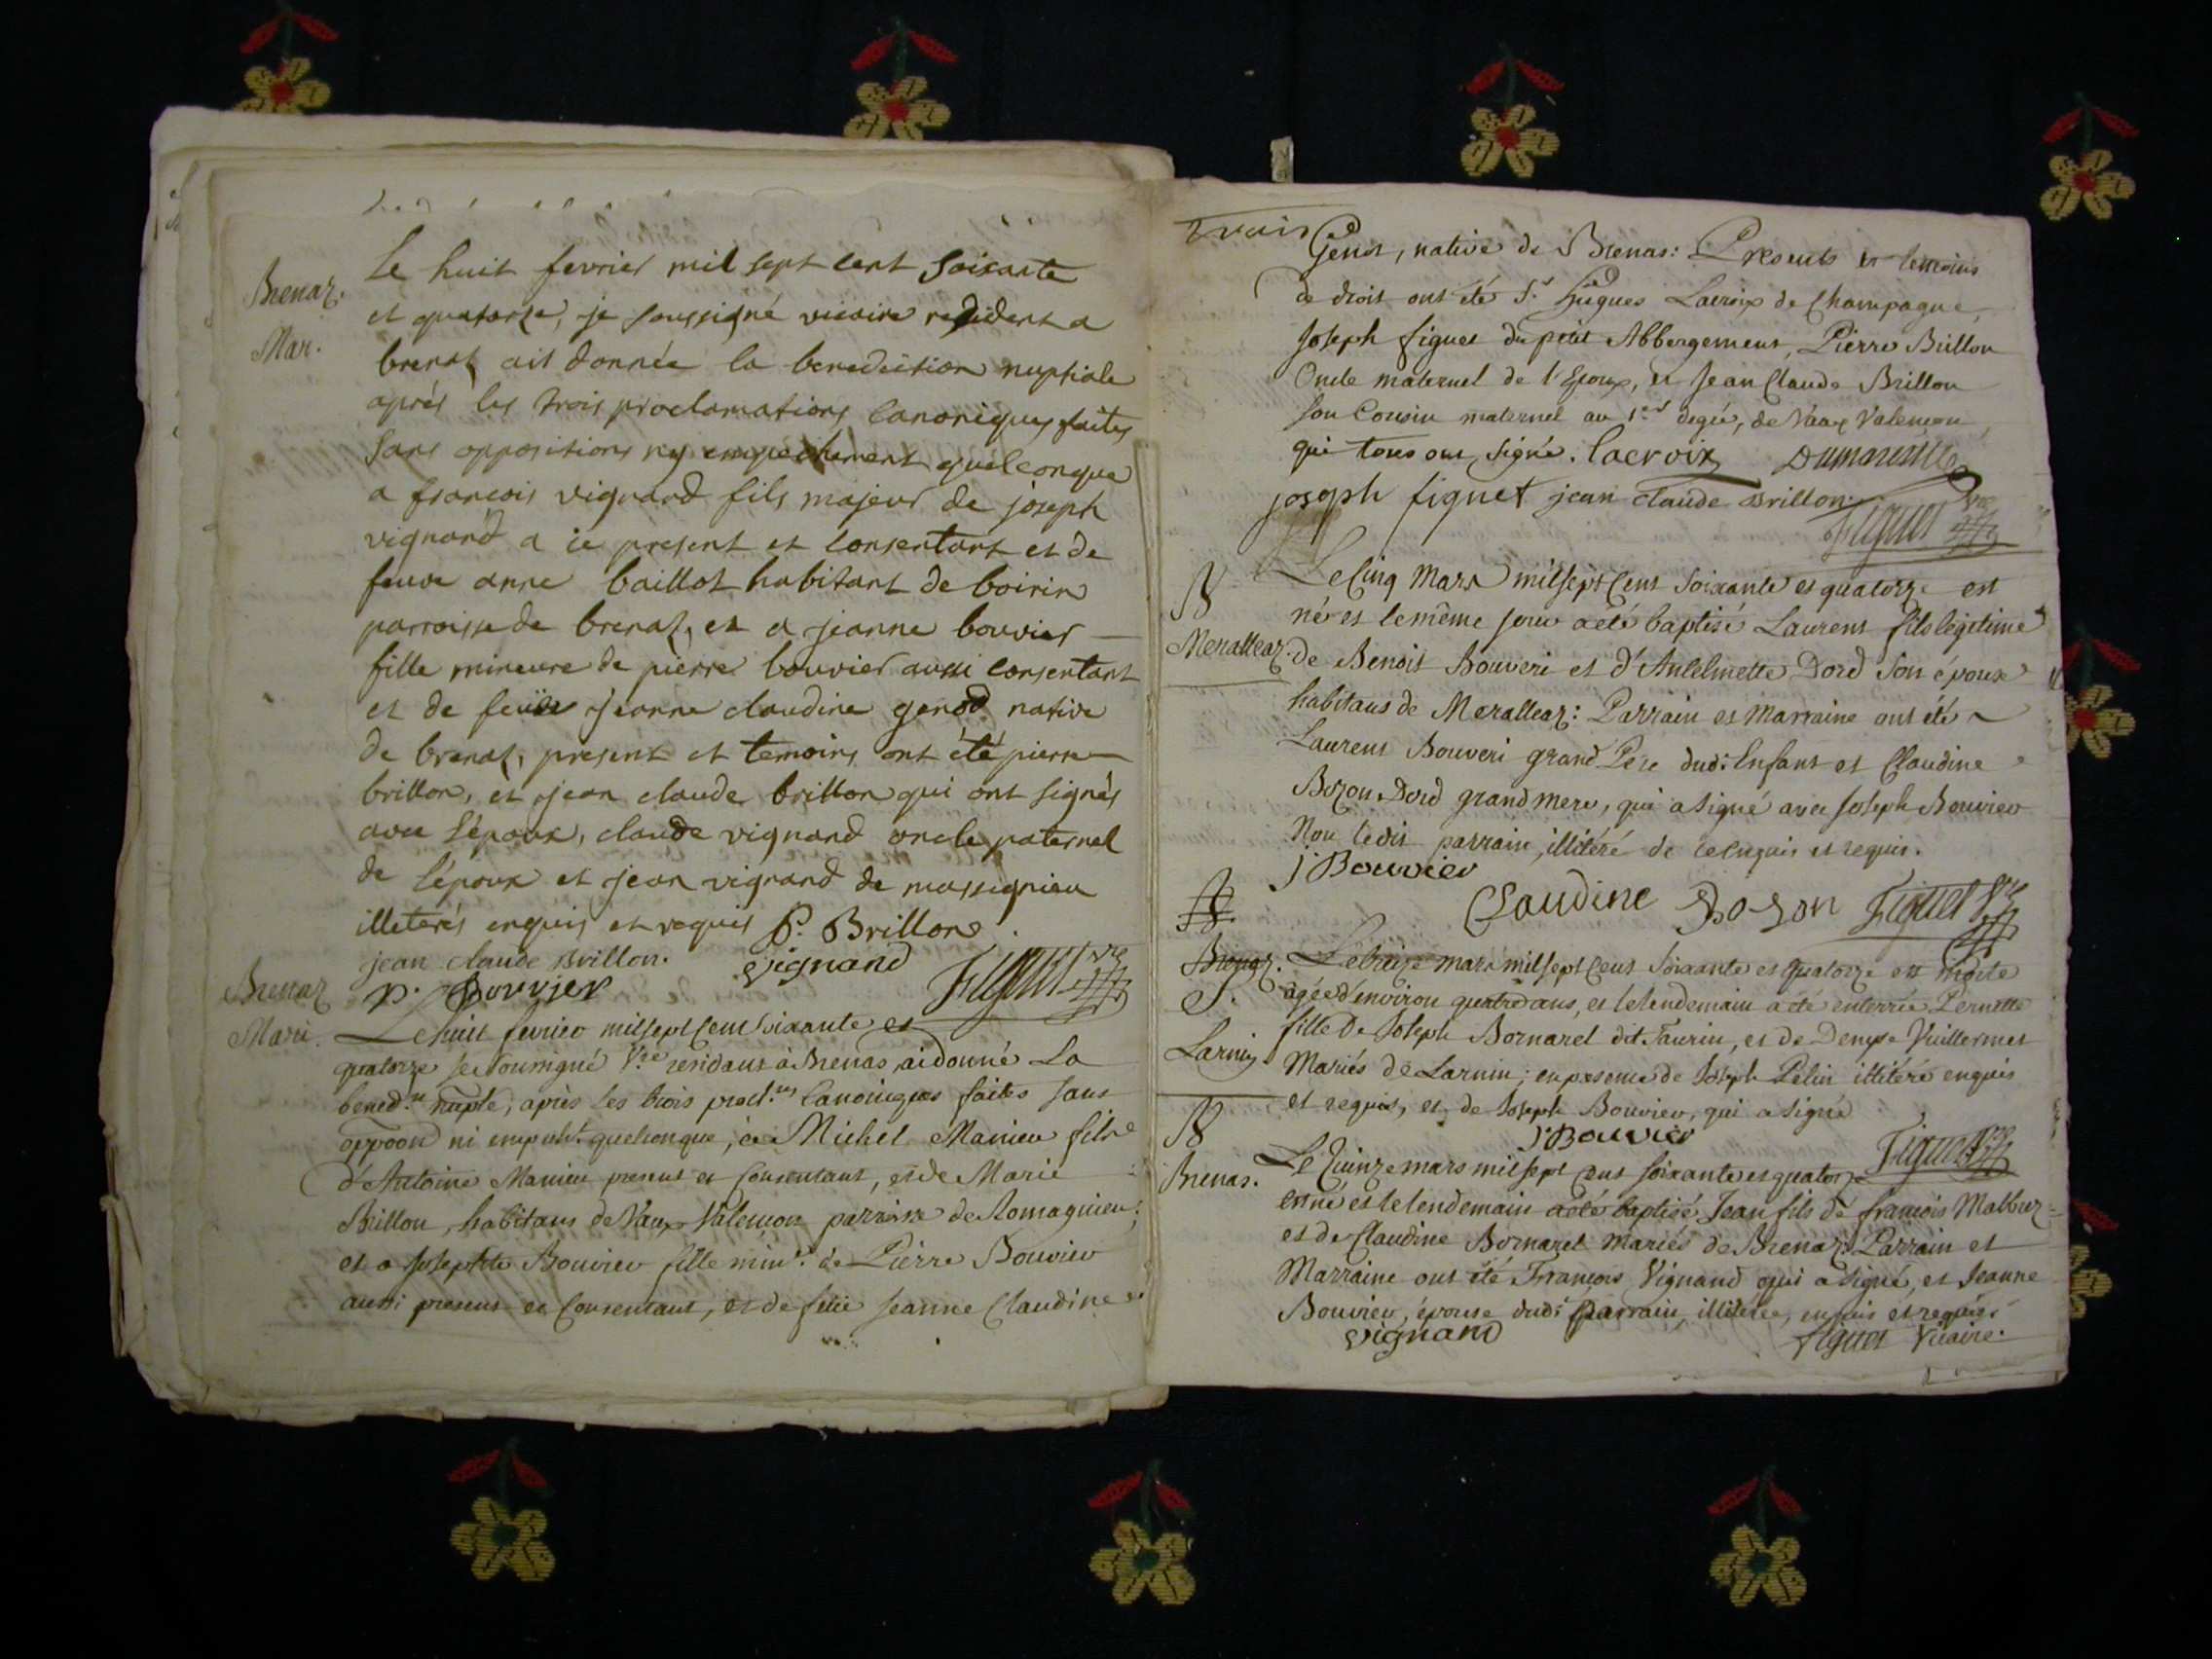 Brenaz.
Mar.
Le huit fevrier mil sept cent soixante
et quatorze, je soussigné vicaire residant a
brenaz ait donnée la benediction nuptiale
aprés les trois proclamations canoniques faites
sans oppositions ny empechement quelconque
a francois vignand fils majeur de joseph
vignand a ce present et consentant et de
feuve anne baillot habitant de boirin
parroisse de brenaz, et a jeanne bouvier
fille mineure de pierre bouvier aussi consentant
et de feüe jeanne claudine genod native
de brenaz, present et temoins ont été pierre
brillon, et jean claude brillon qui ont signés
avec l'époux, claude vignand oncle paternel
de l'époux et jean vignand de massignieu
illeterés enquis et requis P. Brillon
jean claude Brillon. vignand
P. Bouvier Figuet Vre
Brenaz
Mari.
Le huit fevrier mil sept cent soixante et
quatorze je soussigné Vre residant à Brenas, ai donné La
bened.n nupte, après les trois procl.ns Canoniques faites sans
oppoon ni empcht quelconque, à Michel Manieu fils
d'Antoine Manieu present et consentant, et de Marie
Brillon, habitans de Vaux Valençon parroisse de Romagnieu;
et a Josephte Bouvier fille min.e de Pierre Bouvier
aussi present et consentant, et de feüe Jeanne Claudine
trois
Genot, native de Brenas: Presents et temoins
de droit ont été Sr Hugues Lacroix de Champagne,
Joseph figuet du petit Abbergement, Pierre Brillon
Oncle maternel de l'Epoux, et Jean Claude Brillon
son Cousin maternel au 1er degré, de Vaux Valençon
qui tous ont signé. lacroix
joseph figuet jean claude Brillon.
Figuet Vre
B
Meralleaz.
Le Cinq Mars mil sept Cent Soixante et quatorze est
né et le même jour a eté baptisé Laurent fils légitime
de Benoit Bouveri et d'Antelmette Dord son épouse
habitans de Meralleaz: Parrain et Marraine ont été
Laurent Bouveri grand Pere dudt Enfant et Claudine
Bozon Dord grand mere, qui a signé avec Joseph Bouvier
Non ledit parrain, illitéré de ce enquis et requis.
J Bouvier
Claudine Bozon Figuet Vre
Brenaz.
S.
Larnin
Le treize mars mil sept Cent Soixante et quatorze est morte
agée d'environ quatre ans, et le lendemain a été enterrée Pernette
fille de Joseph Bornarel dit Taurin, et de Denyse Vuillermet
Mariés de Larnin; en presence de Joseph Pelin illitéré enquis
et requis, et de Joseph Bouvier, qui a signé
J Bouvier
Figuet Vre
B
Brenas.
Le Quinze mars mil sept Cent soixante et quatorze
est né et le lendemain a été baptisé Jean fils de françois
et de Claudine Bornarel mariés de Brenaz: Parrain et
Marraine ont été François Vignand qui a signé, et Jeanne
Bouvier, épouse dudt Parrain, illiterée, enquis et requise
vignand Figuet Vicaire.